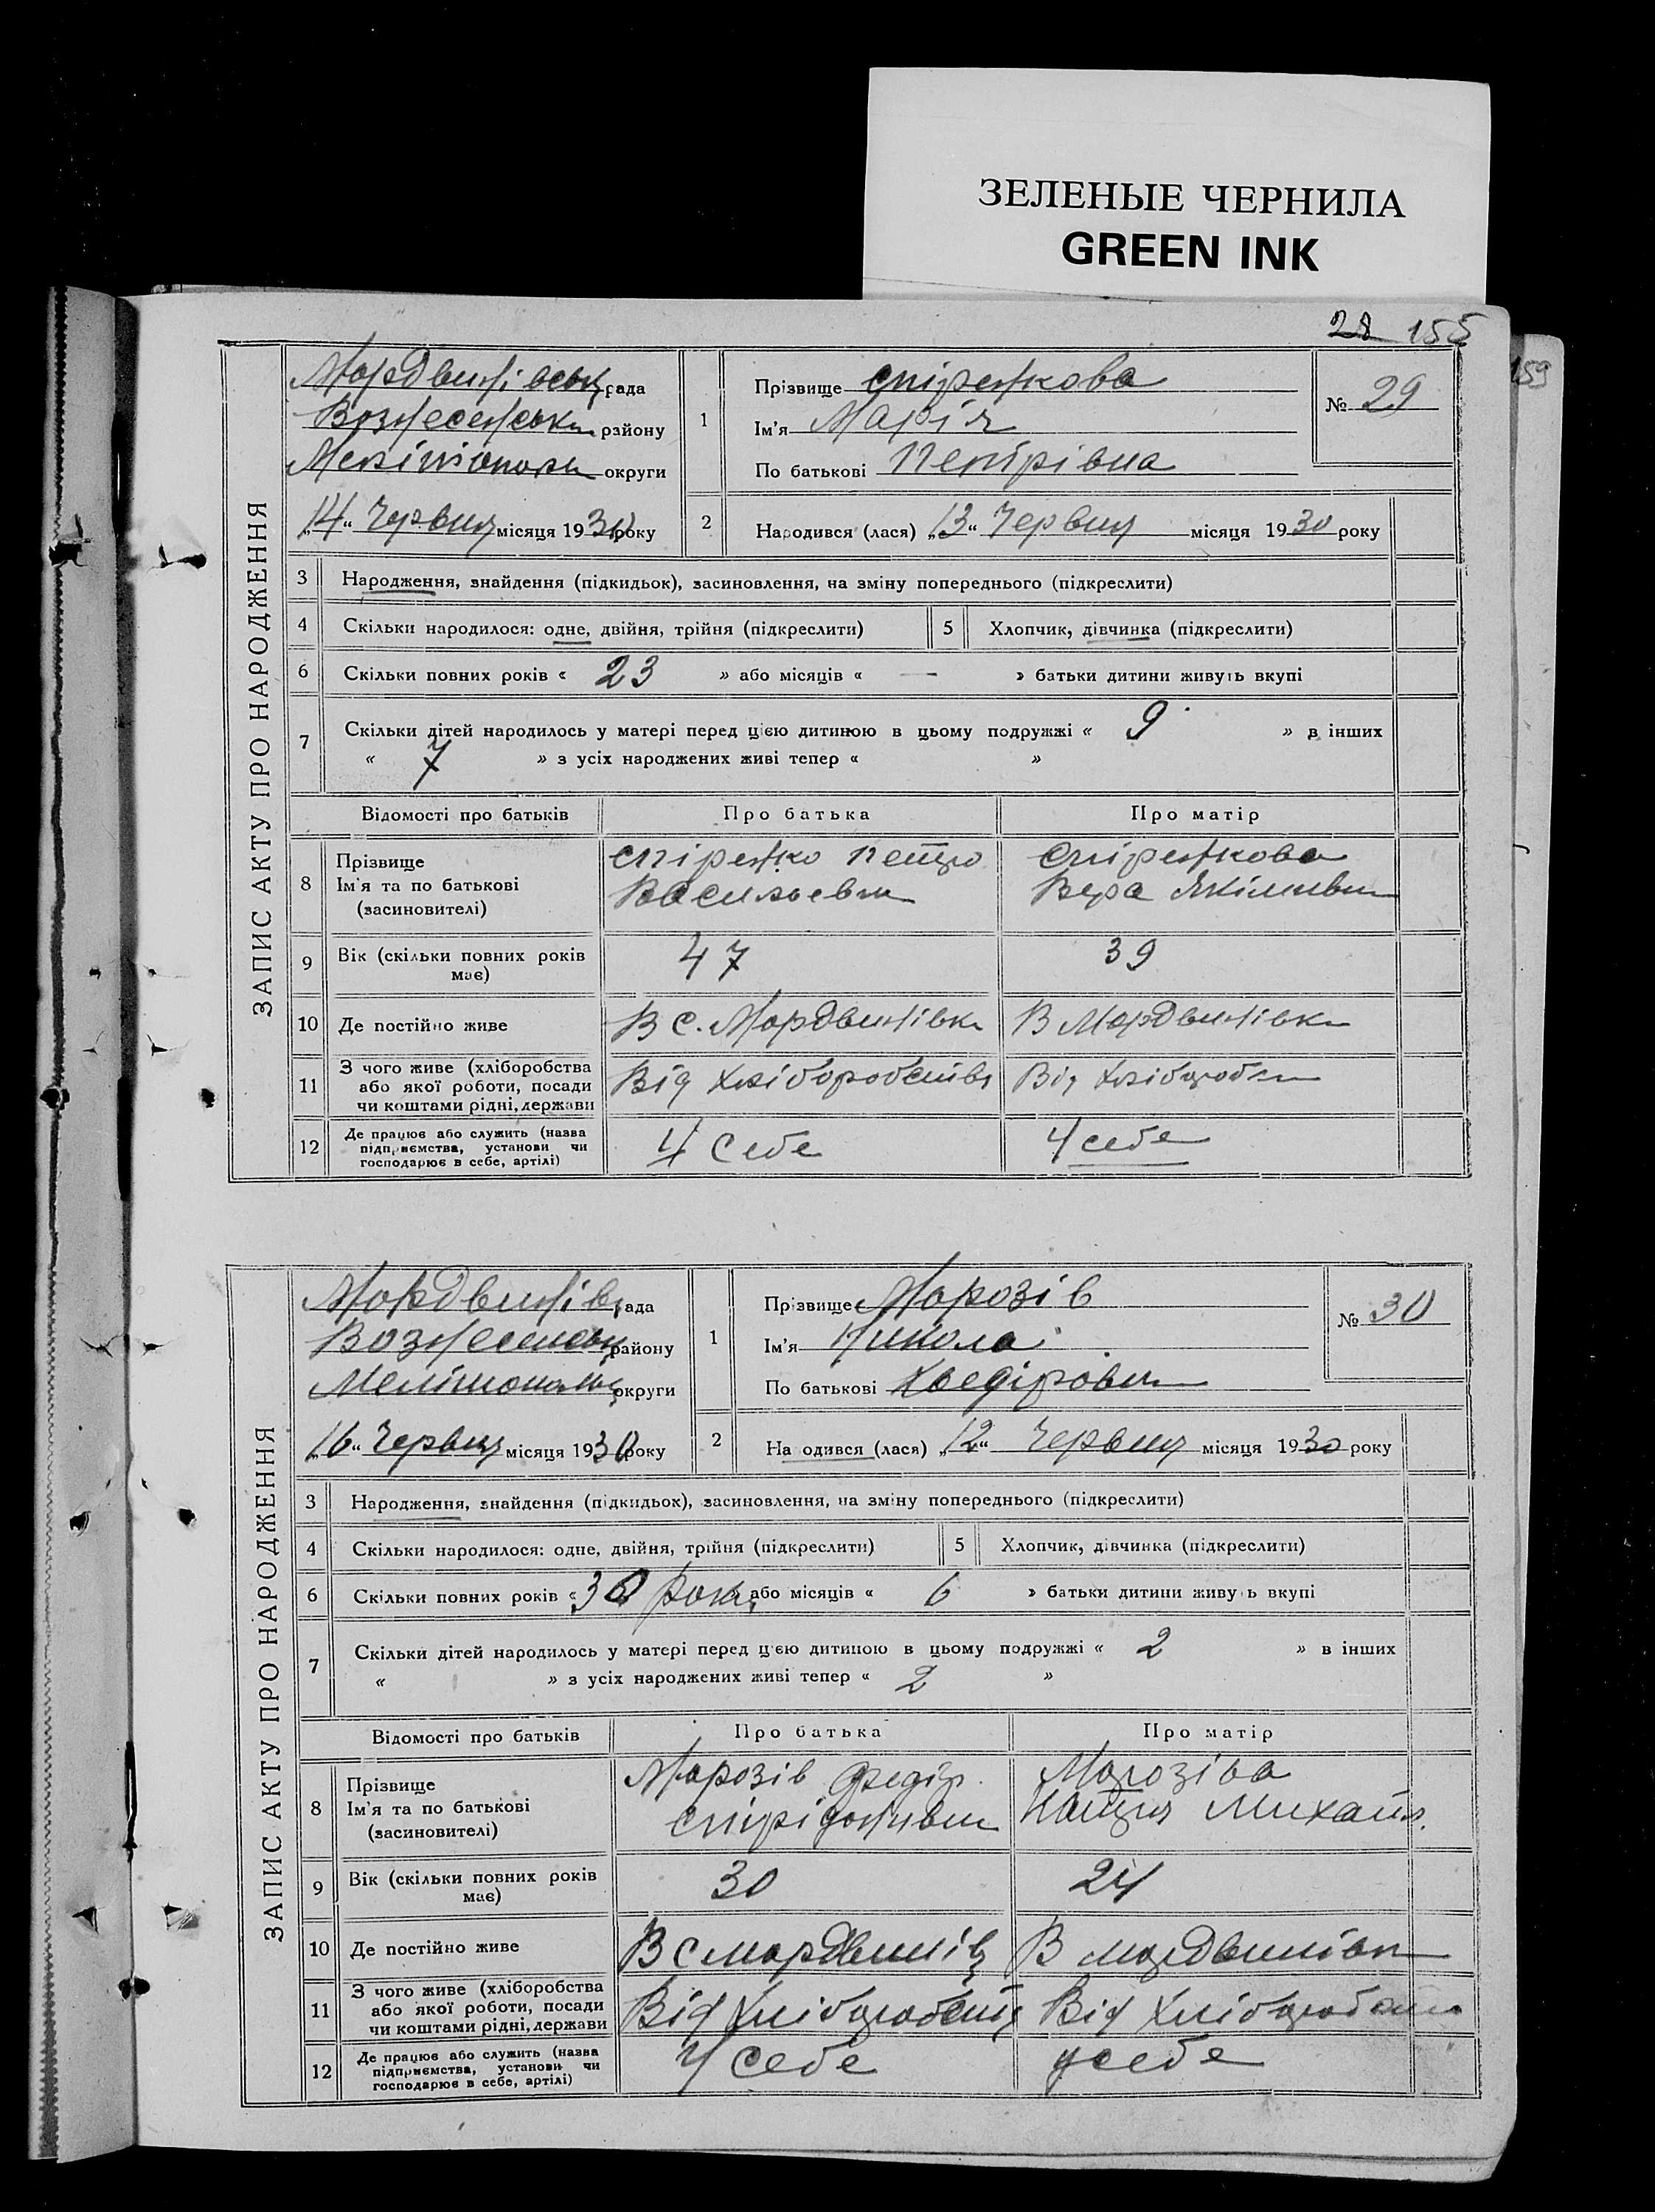 ЗЕЛЕНЫЕ ЧЕРНИЛА
GREEN INK
28 155
159
ЗАПИС АКТУ ПРО НАРОДЖЕННЯ
Мордвинівськ рада
Вознесенськ району
Мелітополь округи
„14“ Червня місяця 1930 року
1
Прізвище Спіренкова
Ім'я Марія
По батькові Петрівна
№ 29
2
Народився (лася) „13“ Червня місяця 1930 року
3 Народження, знайдення (підкидьок), засиновлення, на зміну попереднього (підкреслити)
4 Скільки народилося: одне, двійня, трійня (підкреслити) 5 Хлопчик, дівчинка (підкреслити)
6 Скільки повних років « 23 » або місяців « — » батьки дитини живуть вкупі
7 Скільки дітей народилось у матері перед цією дитиною в цьому подружжі « 9 » в інших
« 7 » з усіх народжених живі тепер « »
Відомості про батьків Про батька Про матір
8 Прізвище
Ім'я та по батькові
(засиновителі)
Спіренко Петро
Васильевич
Спіренкова
Вера Якімивн
9 Вік (скільки повних років має) 47 39
10 Де постійно живе В с. Мордвинівк В Мордвинівк
11 З чого живе (хліборобства
або якої роботи, посади
чи коштами рідні, держави
Від Хліборобства Від Хлібороб
12 Де працює або служить (назва
підприємства, установи чи
господарює в себе, артілі)
У себе У себе
ЗАПИС АКТУ ПРО НАРОДЖЕННЯ
Мордвинів рада
Вознесенськ району
Мелітополь округи
„16“ Червня місяця 1930 року
1
Прізвище Морозів
Ім'я Микола
По батькові Хведірович
№ 30
2
Народився (лася) „12“ Червня місяця 1930 року
3 Народження, знайдення (підкидьок), засиновлення, на зміну попереднього (підкреслити)
4 Скільки народилося: одне, двійня, трійня (підкреслити) 5 Хлопчик, дівчинка (підкреслити)
6 Скільки повних років « або місяців « 6 » батьки дитини живуть вкупі
7 Скільки дітей народилось у матері перед цією дитиною в цьому подружжі « 2 » в інших
« » з усіх народжених живі тепер « 2 »
Відомості про батьків Про батька Про матір
8 Прізвище
Ім'я та по батькові
(засиновителі)
Морозів Федір
Спірідонивич
Морозіва
Михайл.
9 Вік (скільки повних років має) 30 24
10 Де постійно живе В с Мордвинів В Мордвинівк
11 З чого живе (хліборобства
або якої роботи, посади
чи коштами рідні, держави
Від Хліборобств Від Хліборобств
12 Де працює або служить (назва
підприємства, установи чи
господарює в себе, артілі)
У себе у себе